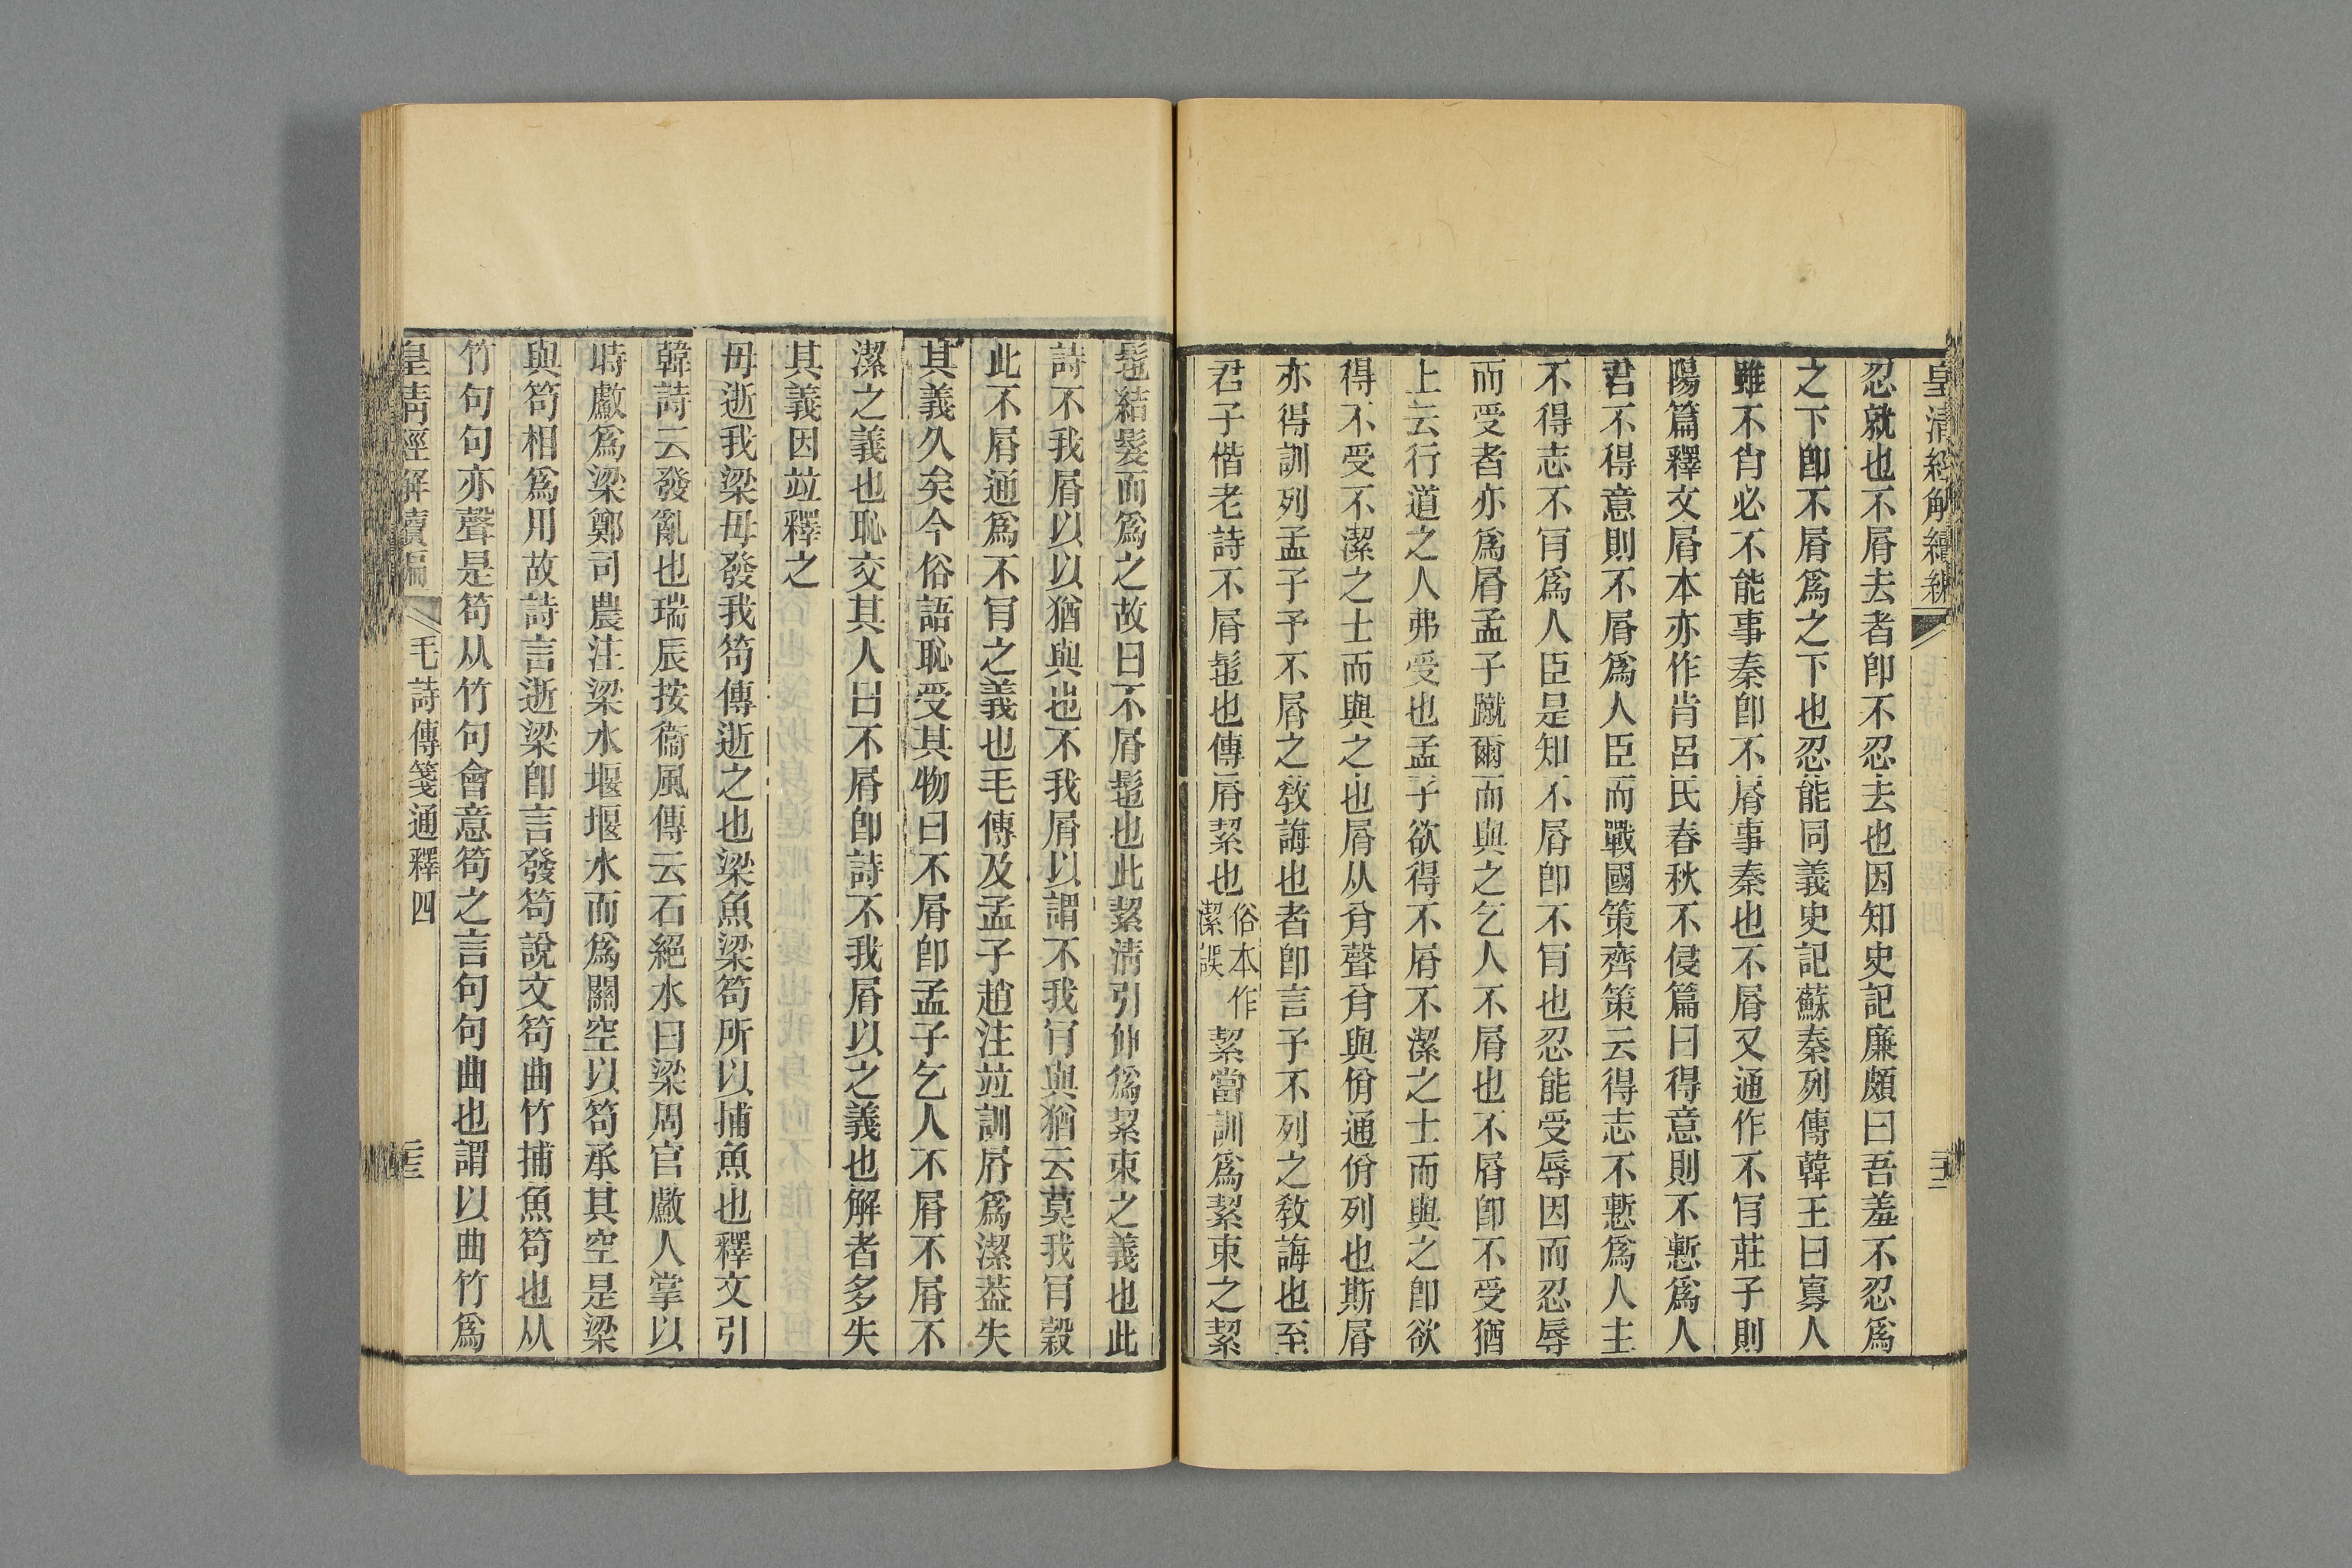 皇清經解續編
忍就也不屑去者卽不忍去也因知史記廉頗曰吾羞不忍爲
之下卽不屑爲之下也忍能同義史記蘇秦列傳韓王曰寡人
雖不肖必不能事秦卽不屑事秦也不屑又通作不肎莊子則
陽篇釋文屑本亦作肯呂氏春秋不侵篇曰得意則不慙爲人
君不得意則不屑爲人臣而戰國策齊策云得志不慙爲人主
不得志不肎爲人臣是知不屑卽不肎也忍能受辱因而忍辱
而受者亦爲屑孟子蹴爾而與之乞人不屑也不屑卽不受猶
上云行道之人弗受也孟子欲得不屑不潔之士而與之卽欲
得不受不潔之士而與之也屑从㑞聲㑞與佾通佾列也斯屑
亦得訓列孟子予不屑之敎誨也者卽言予不列之敎誨也至
君子偕老詩不屑髢也傳屑絜也俗本作潔誤絜當訓爲絜束之絜
髢結髮而爲之故曰不屑髢也此絜淸引伸爲絜束之義也此
詩不我屑以以猶與也不我屑以謂不我肎與猶云莫我肎穀
此不屑通爲不肎之義也毛傳及孟子趙注竝訓屑爲潔葢失
其義久矣今俗語恥受其物曰不屑卽孟子乞人不屑不屑不
潔之義也恥交其人曰不屑卽詩不我屑以之義也解者多失
其義因竝釋之
毋逝我梁毋發我笱傳逝之也梁魚梁笱所以捕魚也釋文引
韓詩云發亂也瑞辰按衞風傳云石絕水曰梁周官䱷人掌以
時䱷爲梁鄭司農注梁水堰堰水而爲關空以笱承其空是梁
與笱相爲用故詩言逝梁卽言發笱說文笱曲竹捕魚笱也从
竹句句亦聲是笱从竹句會意笱之言句句曲也謂以曲竹爲
皇淸經解續編
毛詩傳箋通釋四